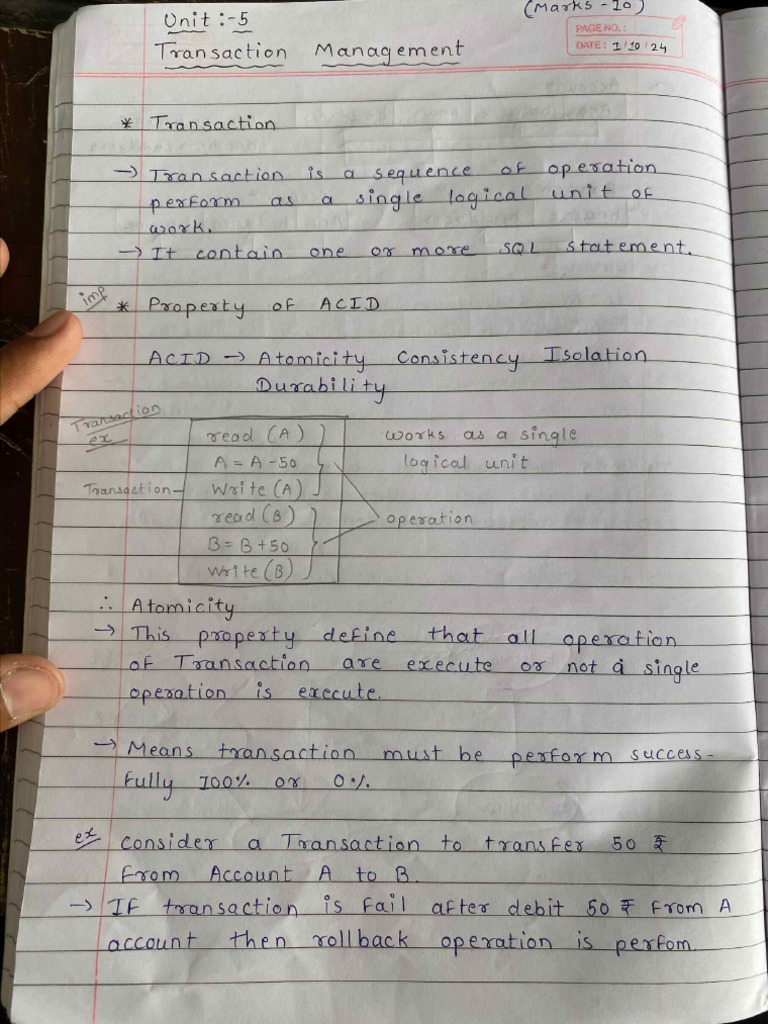 (Marks - 10)
Unit :- 5
PAGE NO. :
DATE : 1/10/24
Transaction Management
* Transaction
→ Transaction is a sequence of operation
perform as a single logical unit of
work.
→ It contain one or more SQL statement.
imp * Property of ACID
ACID → Atomicity Consistency Isolation
Durability
Transaction
ex
read (A) works as a single
A = A - 50 logical unit
Transaction - Write (A)
read (B) operation
B = B + 50
write (B)
∴ Atomicity
→ This property define that all operation
of Transaction are execute or not a single
operation is execute.
→ Means transaction must be perform success-
fully 100% or 0%.
ex consider a Transaction to transfer 50 ₹
From Account A to B.
→ If transaction is fail after debit 50 ₹ from A
account then rollback operation is perfom.